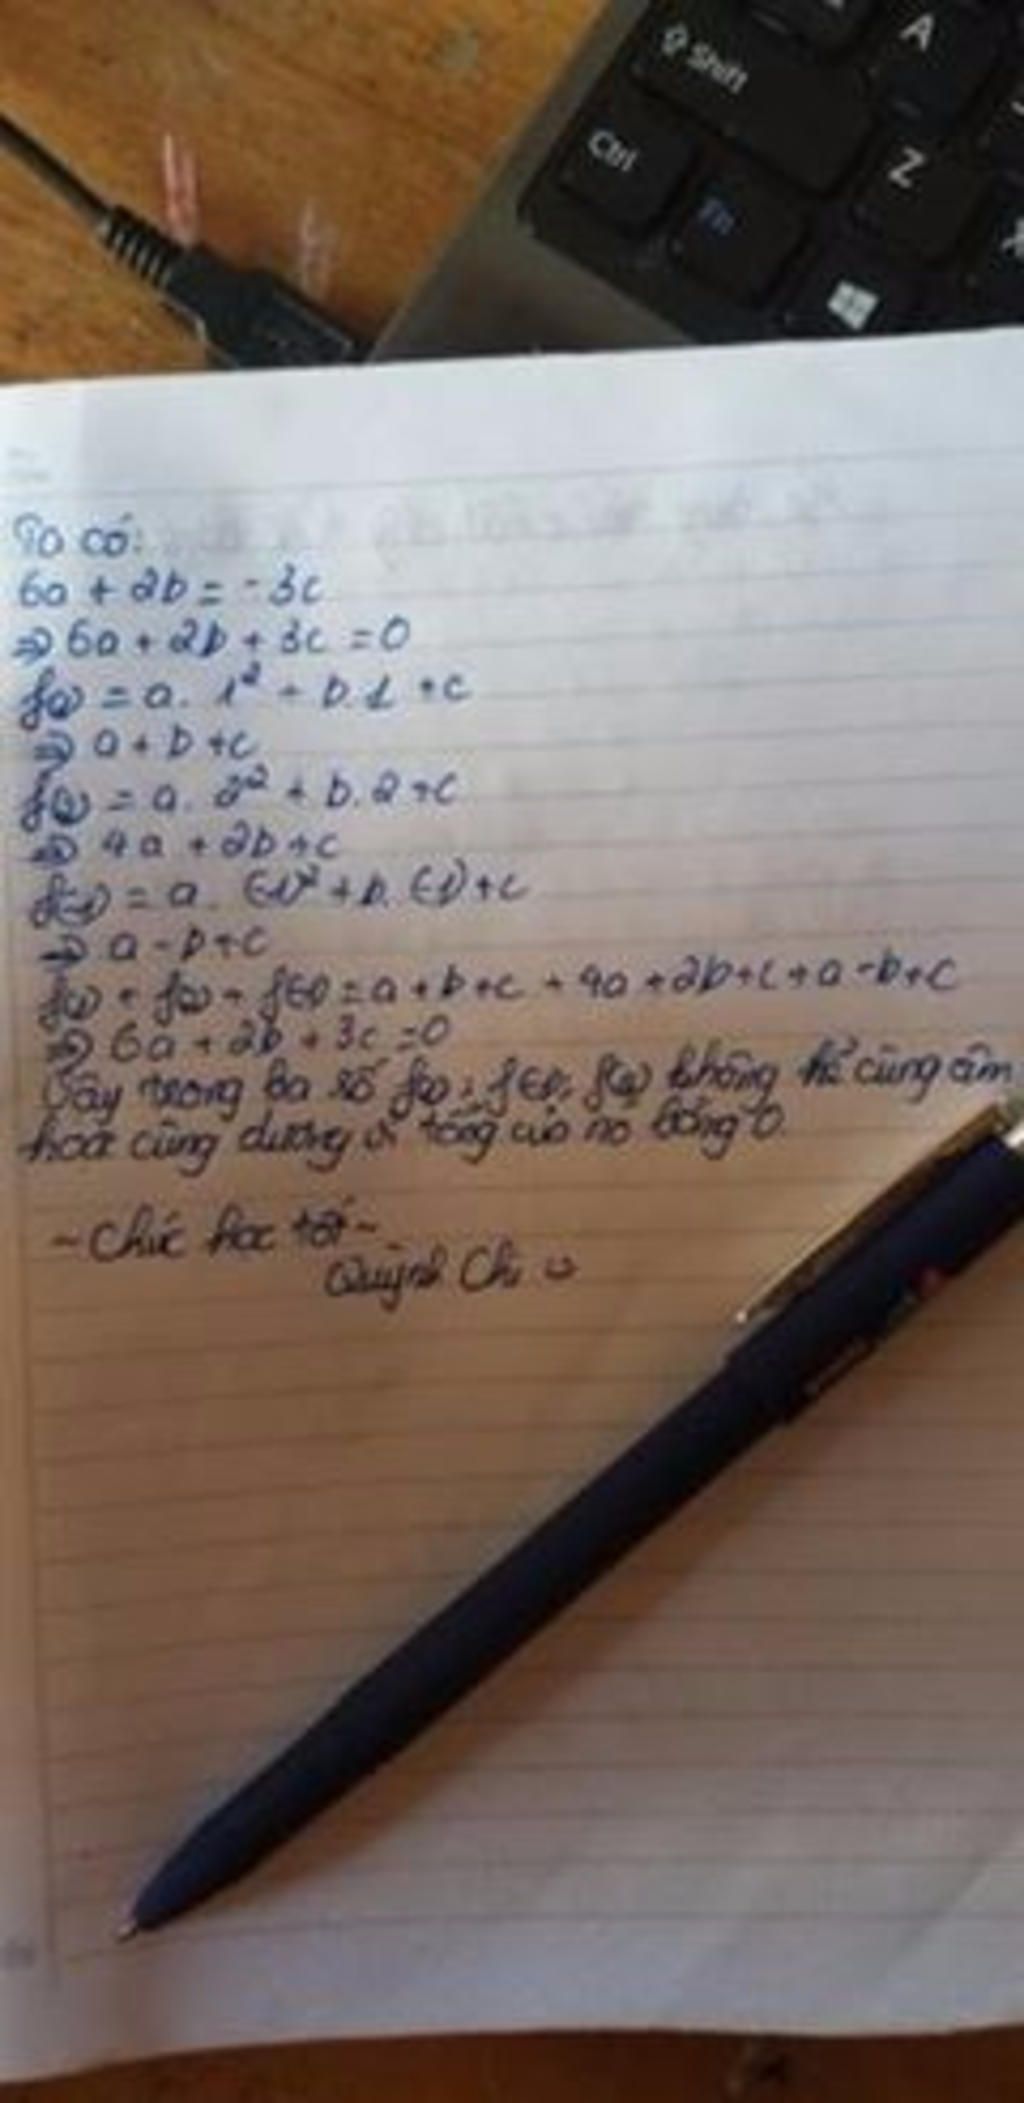 A
⇧ Shift
Ctrl
Z
Fn
X
Ta có:
6a + 2b = -3c
⇒ 6a + 2b + 3c = 0
f(1) = a. 1² + b.1 + c
⇒ a + b + c
f(2) = a. 2² + b.2 + c
⇒ 4a + 2b + c
f(-1) = a. (-1)² + b. (-1) + c
⇒ a - b + c
f(1) + f(2) + f(-1) = a + b + c + 4a + 2b + c + a - b + c
⇒ 6a + 2b + 3c = 0
Vậy trong ba số f(1); f(-1); f(2) không thể cùng âm
hoặc cùng dương vì tổng của nó bằng 0.
~ Chúc học tốt ~
Quỳnh Chi